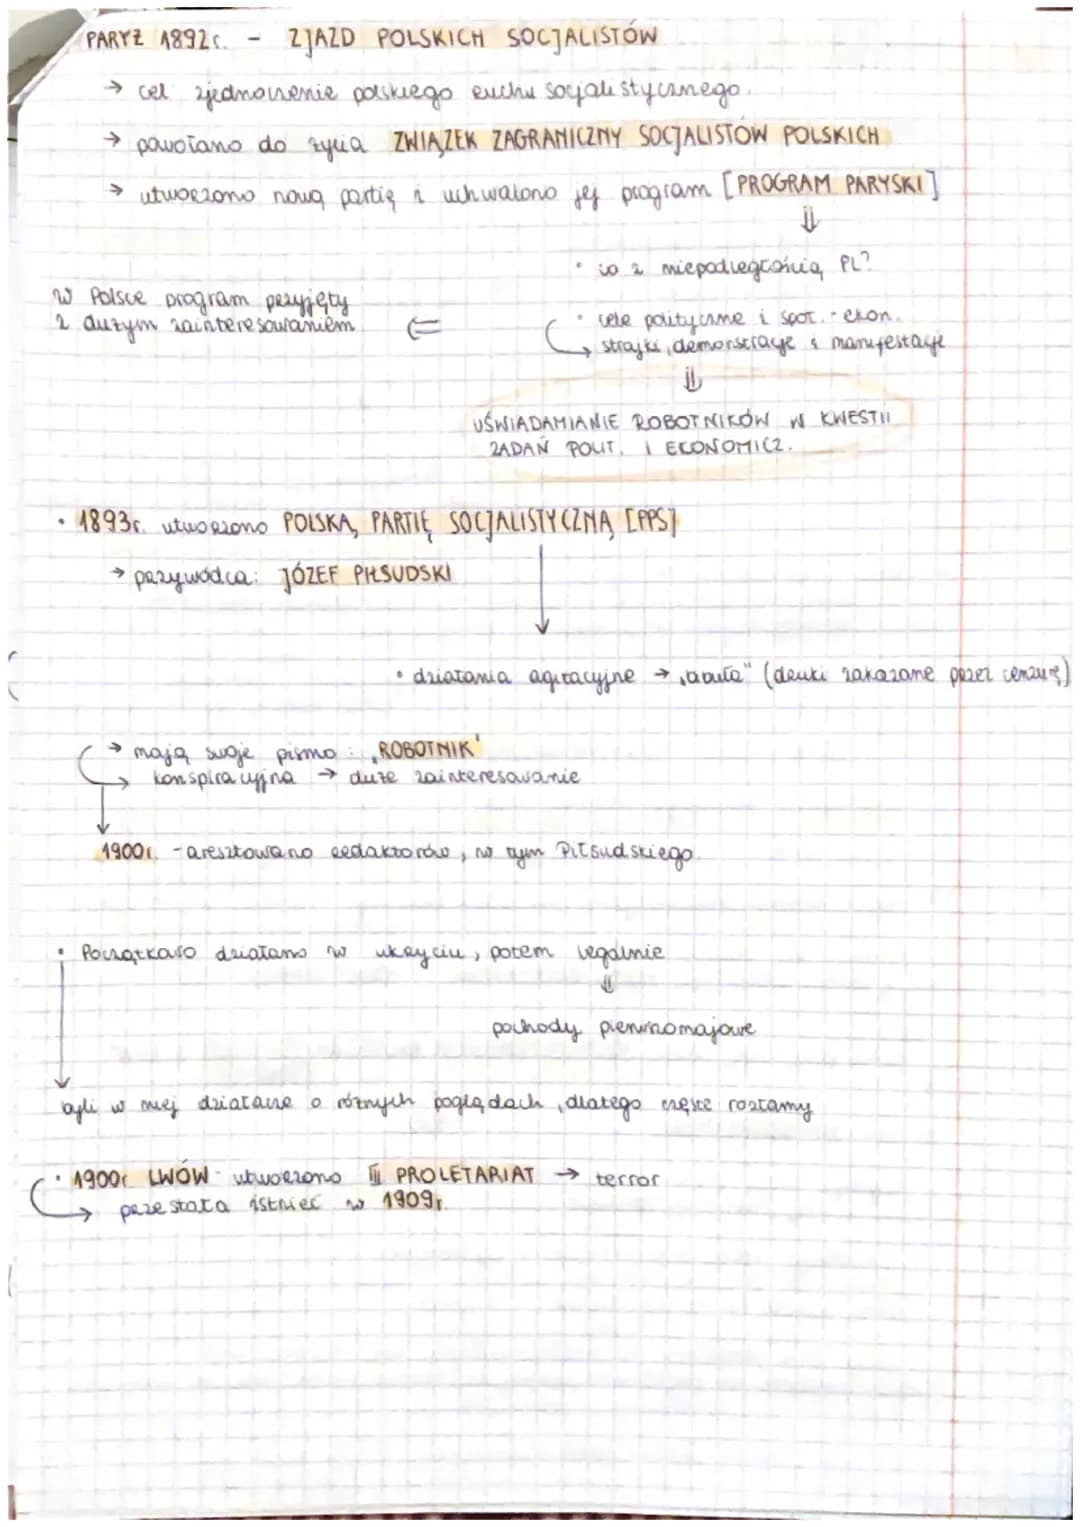 PARYŻ 1892r. - ZJAZD POLSKICH SOCJALISTÓW
→ cel zjednoczenie polskiego ruchu socjalistycznego.
→ powołano do życia ZWIĄZEK ZAGRANICZNY SOCJALISTÓW POLSKICH
→ utworzono nową partię i uchwalono jej program [PROGRAM PARYSKI]
⇓
• co z niepodległością PL?
W Polsce program przyjęty
z dużym zainteresowaniem ⇐
• cele polityczne i społ.-ekon.
→ strajki, demonstracje i manifestacje
⇓
UŚWIADAMIANIE ROBOTNIKÓW W KWESTII
ZADAŃ POLIT. I EKONOMICZ.
• 1893r. utworzono POLSKĄ PARTIĘ SOCJALISTYCZNĄ [PPS]
→ przywódca: JÓZEF PIŁSUDSKI
↓
• działania agitacyjne → „bibuła" (druki zakazane przez cenzurę)
→ mają swoje pismo: „ROBOTNIK"
→ konspiracyjna → duże zainteresowanie
↓
1900r. - aresztowano redaktorów, w tym Piłsudskiego.
• Początkowo działano w ukryciu, potem legalnie
⇓
pochody pierwszomajowe
↓
byli w niej działacze o różnych poglądach, dlatego częste rozłamy
• 1900r. LWÓW - utworzono III PROLETARIAT → terror
→ przestała istnieć w 1909r.